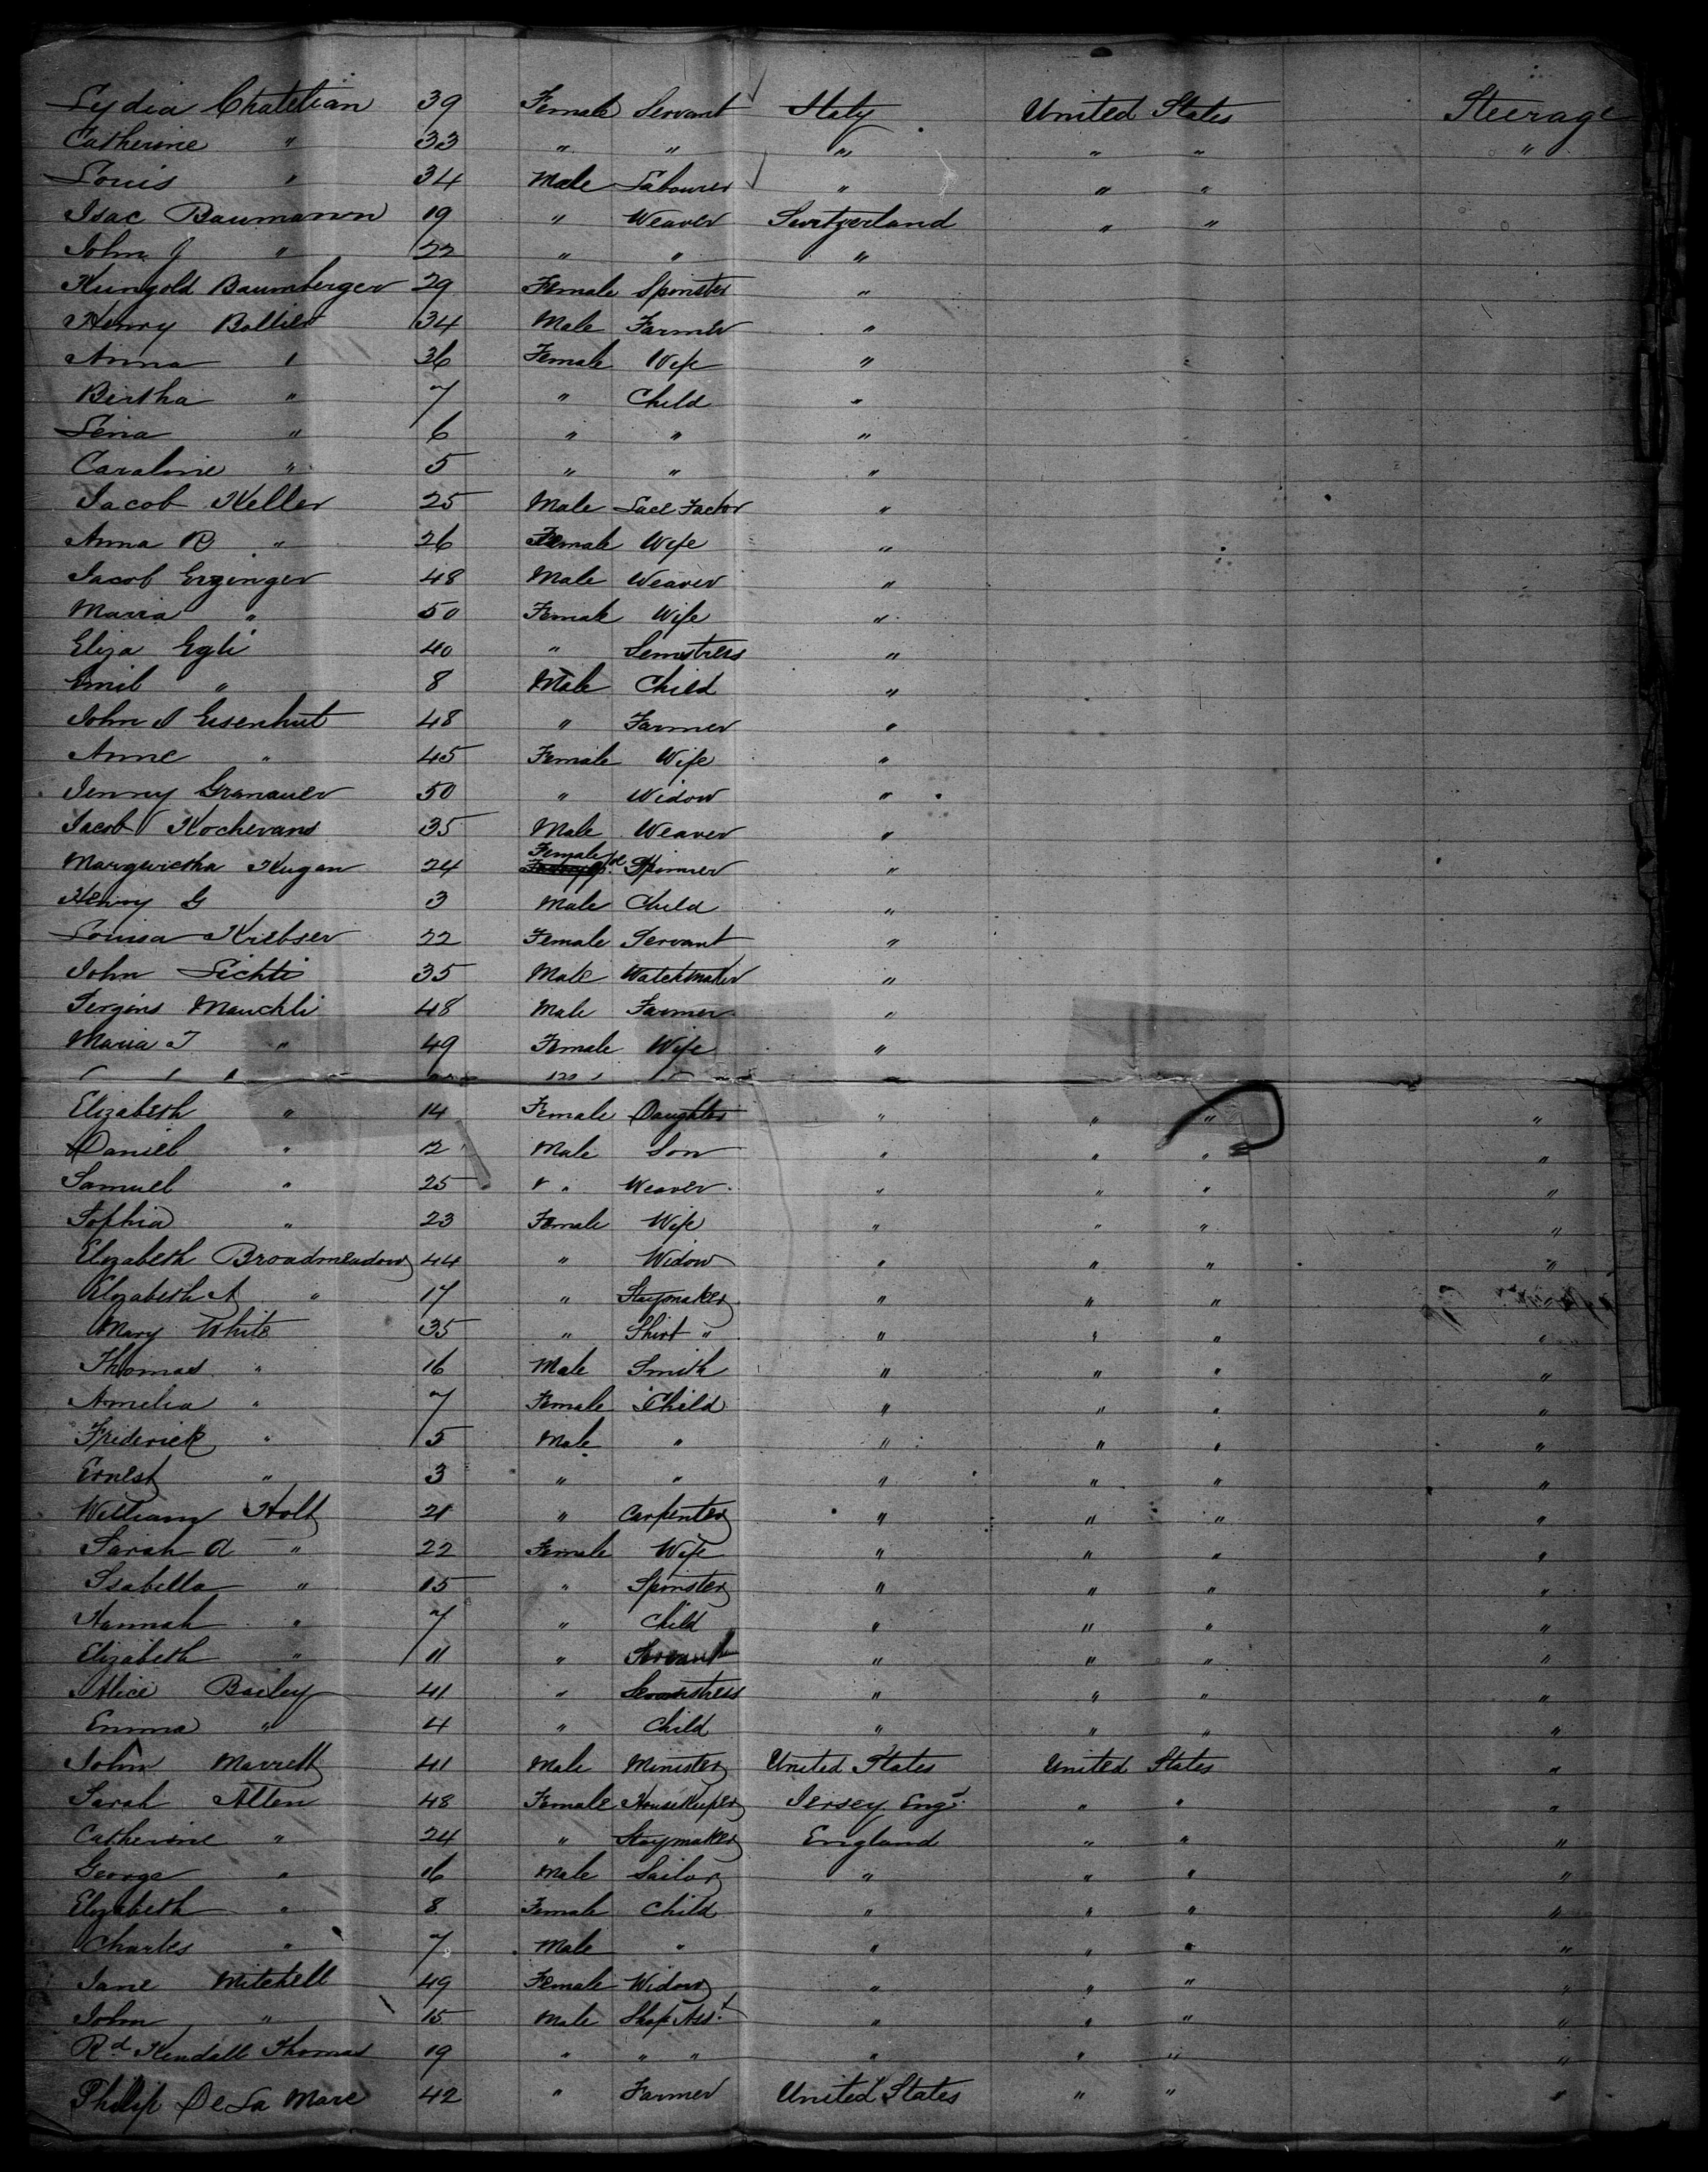 Lydia Chatelian 39 Female Servant Italy United States Steerage
Catherine " 33 " " " " " "
Louis " 34 Male Labourer " " "
Isac Baumann 19 " Weaver Switzerland " "
John J " 22 " " "
Kungold Baumberger 29 Female Spinster "
Henry Bollier 34 Male Farmer "
Anna " 36 Female Wife "
Bertha " 7 " Child "
Lena " 6 " " "
Caroline " 5 " " "
Jacob Keller 25 Male Lace Factor "
Anna R " 26 Female Wife "
Jacob Erzinger 48 Male Weaver "
Maria " 50 Female Wife "
Eliza Egli 40 " Semstress "
Emil " 8 Male Child "
John J Eisenhut 48 " Farmer "
Anne " 45 Female Wife "
Jenny Granauer 50 " Widow "
Jacob Kochevans 35 Male Weaver "
Margaretha Kugan 24 Female Spinner "
Henry G 3 Male Child "
Louisa Kriebser 22 Female Servant "
John Lichti 35 Male Watchmaker "
Sergins Mauchli 48 Male Farmer "
Maria T " 49 Female Wife "
Elizabeth " 14 Female Daughter " " " "
Daniel " 12 Male Son " " " "
Samuel " 25 " Weaver " " " "
Sophia " 23 Female Wife " " " "
Elizabeth Broadmeadow 44 " Widow " " " "
Elizabeth A " 17 " Staymaker " " "
Mary White 35 " Shirt " " " " "
Thomas " 16 Male Smith " " " "
Amelia " 7 Female Child " " " "
Frederick " 5 Male " " " " "
Ernest " 3 " " " " " "
William Holt 21 " Carpenter " " " "
Sarah A " 22 Female Wife " " " "
Isabella " 15 " Spinster " " " "
Hannah " 7 " Child " " " "
Elizabeth " 11 " Servant " " " "
Alice Bailey 41 " Seamstress " " " "
Emma " 4 " Child " " " "
John Marrett 41 Male Minister United States United States "
Sarah Allen 48 Female Housekeeper Jersey Engd. " " "
Catherine " 24 " Staymaker England " " "
George " 16 Male Sailor " " " "
Elizabeth " 8 Female Child " " " "
Charles " 7 Male " " " " "
Jane Mitchell 49 Female Widow " " " "
John " 15 Male Shop Asst. " " " "
Rd Kendall Thomas 19 " " " " " " "
Philip De La Mare 42 " Farmer United States " " "